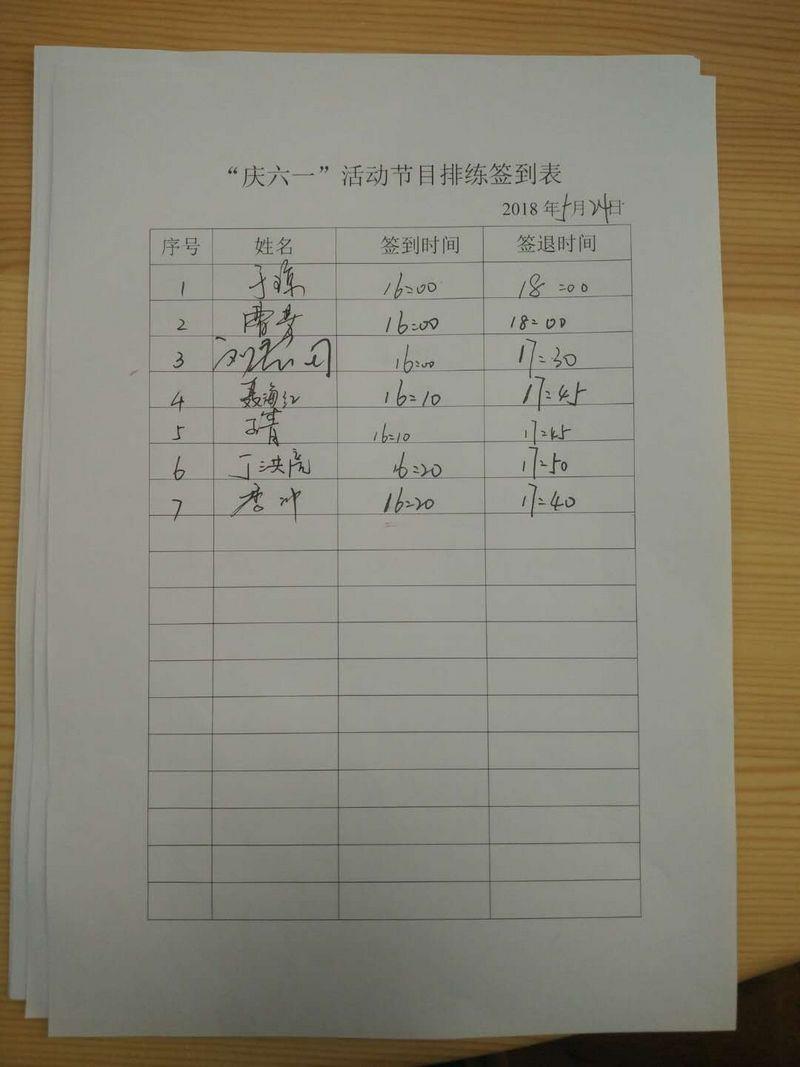 “庆六一”活动节目排练签到表
2018年5月24日
序号 姓名 签到时间 签退时间
1 16:00 18:00
2 曹 16:00 18:00
3 刘 16:00 17:30
4 聂海红 16:10 17:45
5 16:10 17:45
6 丁洪 16:20 17:50
7 李冲 16:20 17:40